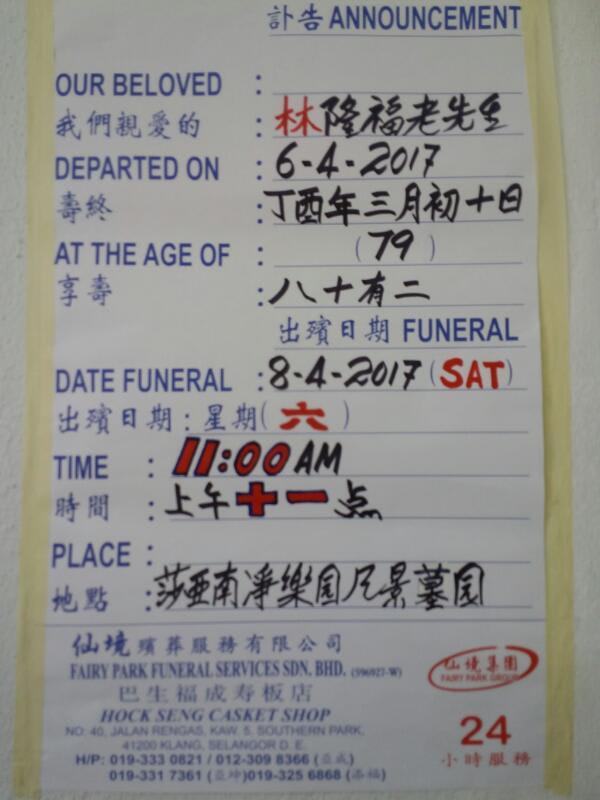 訃告 ANNOUNCEMENT
OUR BELOVED :
我們親愛的 : 林隆福老先生
DEPARTED ON : 6-4-2017
壽終 : 丁酉年三月初十日
AT THE AGE OF : (79)
享壽 : 八十有二
出殯日期 FUNERAL
DATE FUNERAL : 8-4-2017 (SAT)
出殯日期 : 星期( 六 )
TIME : 11:00 AM
時間 : 上午十一点
PLACE :
地點 : 莎亜南净樂园风景墓园
仙境殯葬服務有限公司
FAIRY PARK FUNERAL SERVICES SDN. BHD. (596927-W)
巴生福成寿板店
HOCK SENG CASKET SHOP
NO: 40, JALAN RENGAS, KAW. 5. SOUTHERN PARK,
41200 KLANG, SELANGOR D. E.
H/P: 019-333 0821 / 012-309 8366 (亞成)
019-331 7361 (亞坤) 019-325 6868 (添福)
仙境集團
FAIRY PARK GROUP
24
小時服務